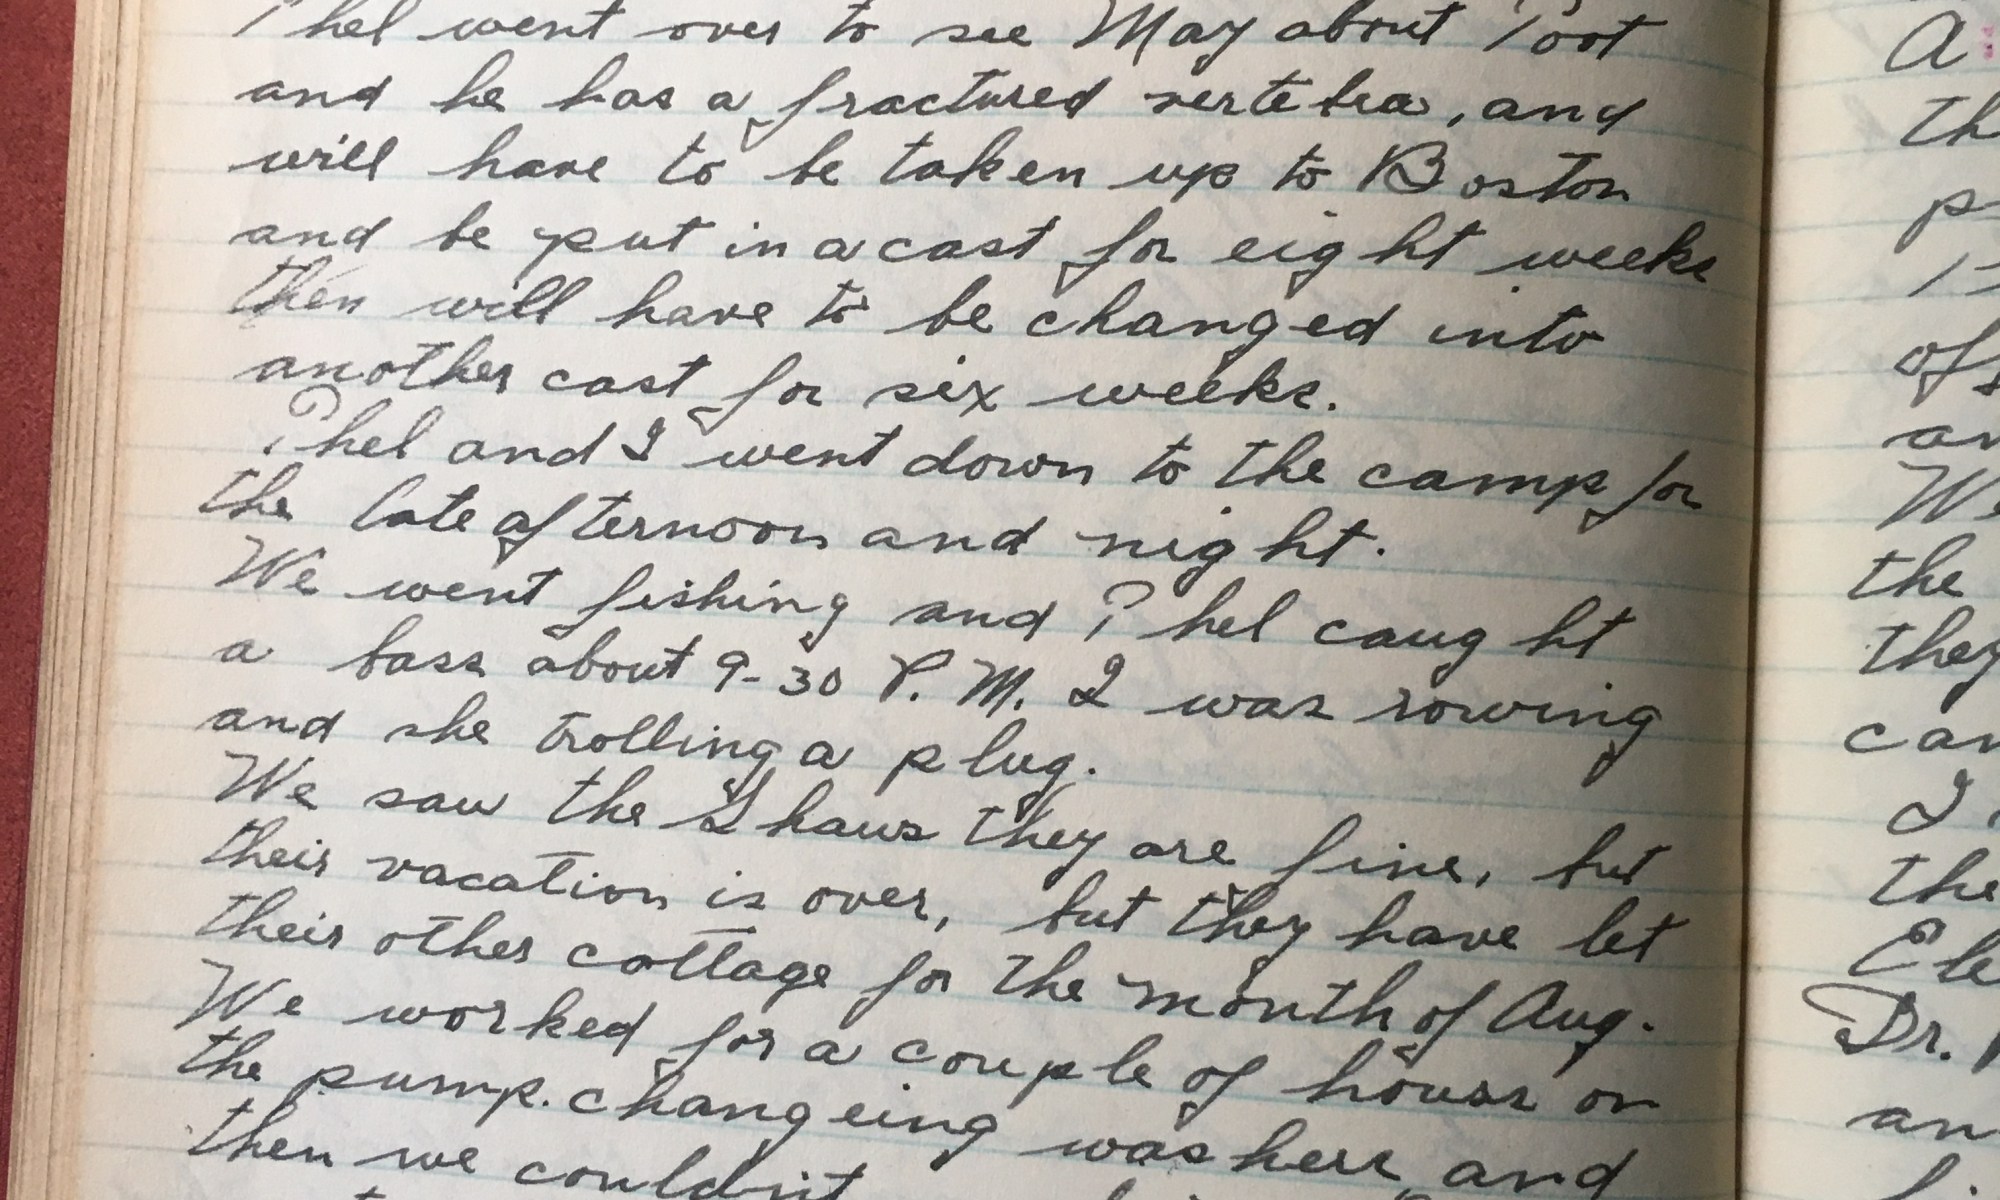 Phel went over to see May about Toot
and he has a fractured vertebra, and
will have to be taken up to Boston
and be put in a cast for eight weeks
then will have to be changed into
another cast for six weeks.
Phel and I went down to the camp for
the late afternoon and night.
We went fishing and Phel caught
a bass about 9-30 P.M. I was rowing
and she trolling a plug.
We saw the Shaws they are fine, but
their vacation is over, but they have let
their other cottage for the month of Aug.
We worked for a couple of hours on
the pump. changeing washers and
then we couldn't
A
th
of
an
We
the
they
can
I
the
Ele
Dr.
an